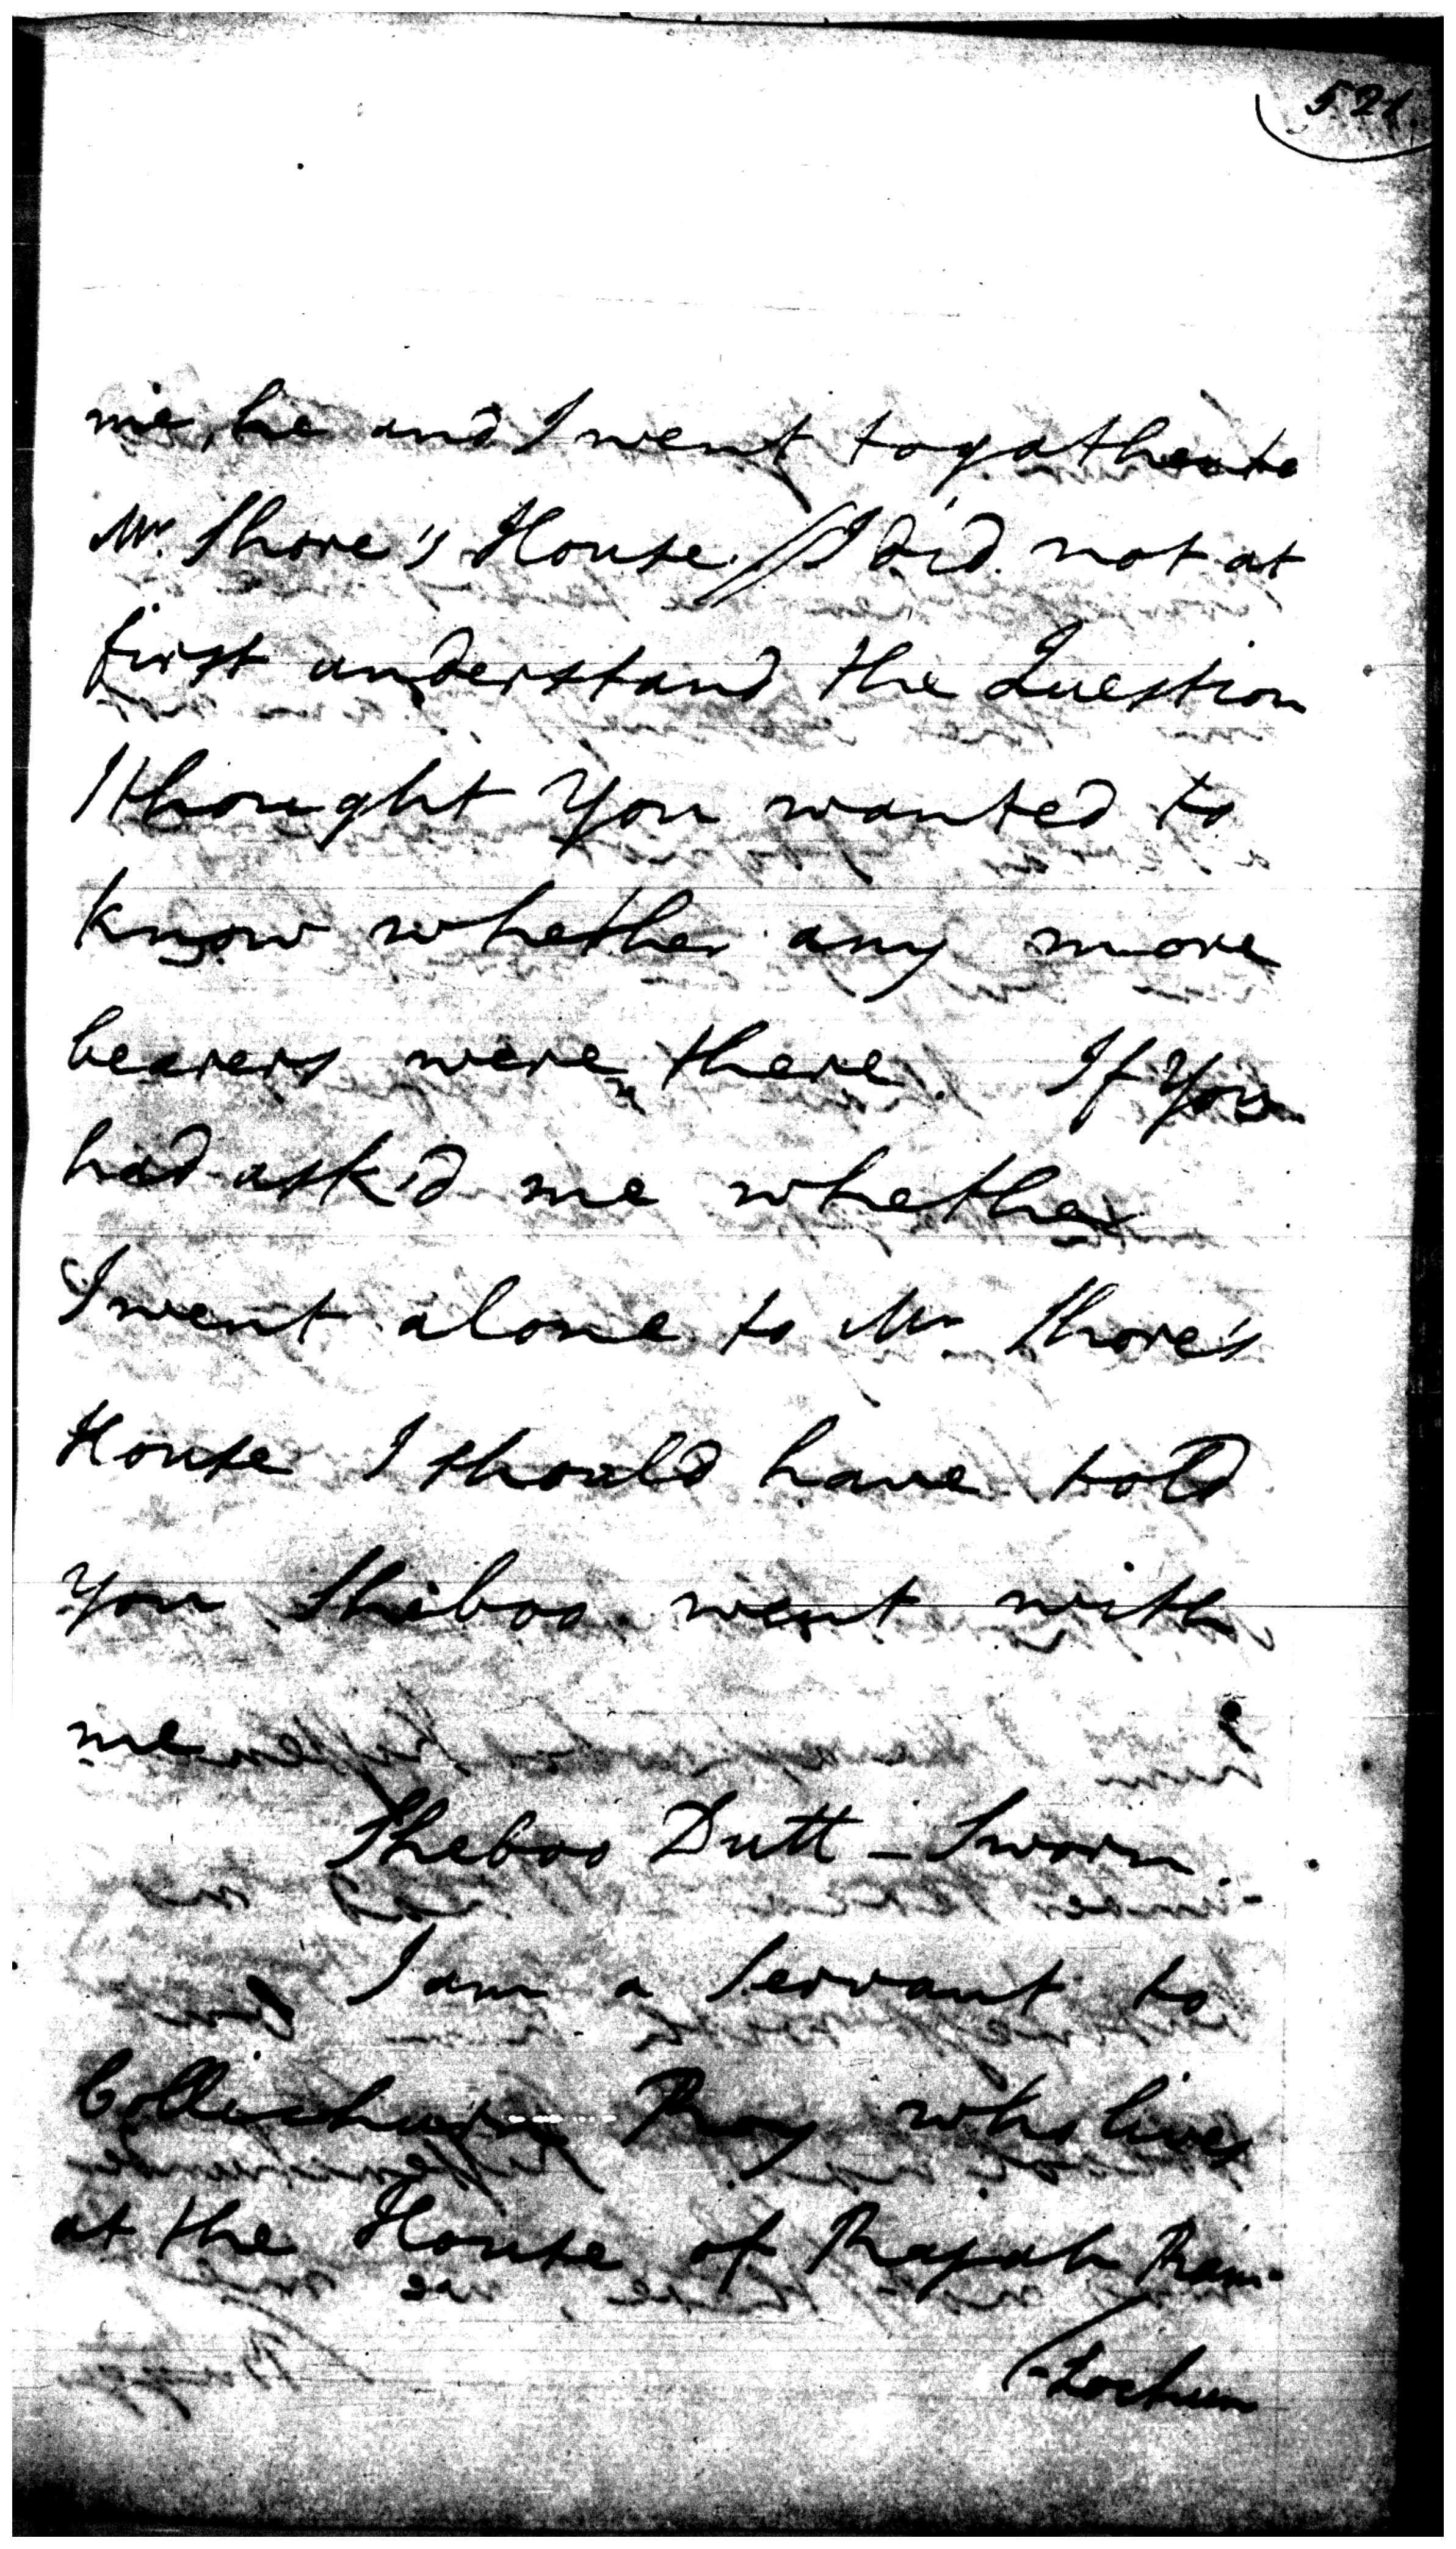 521
me, he and I went togather to
Mr. Shore's House // I did not at
first understand the Question
I thought You wanted to
know whether any more
bearers were there. If You
had ask'd me whether
I went alone to Mr. Shore's
House I should have told
You Sheboo went with
me
Sheboo Dutt - Sworn
I am a Servant to
Collichurn Roy who lives
at the House of Rajah Ram-
-Lochun